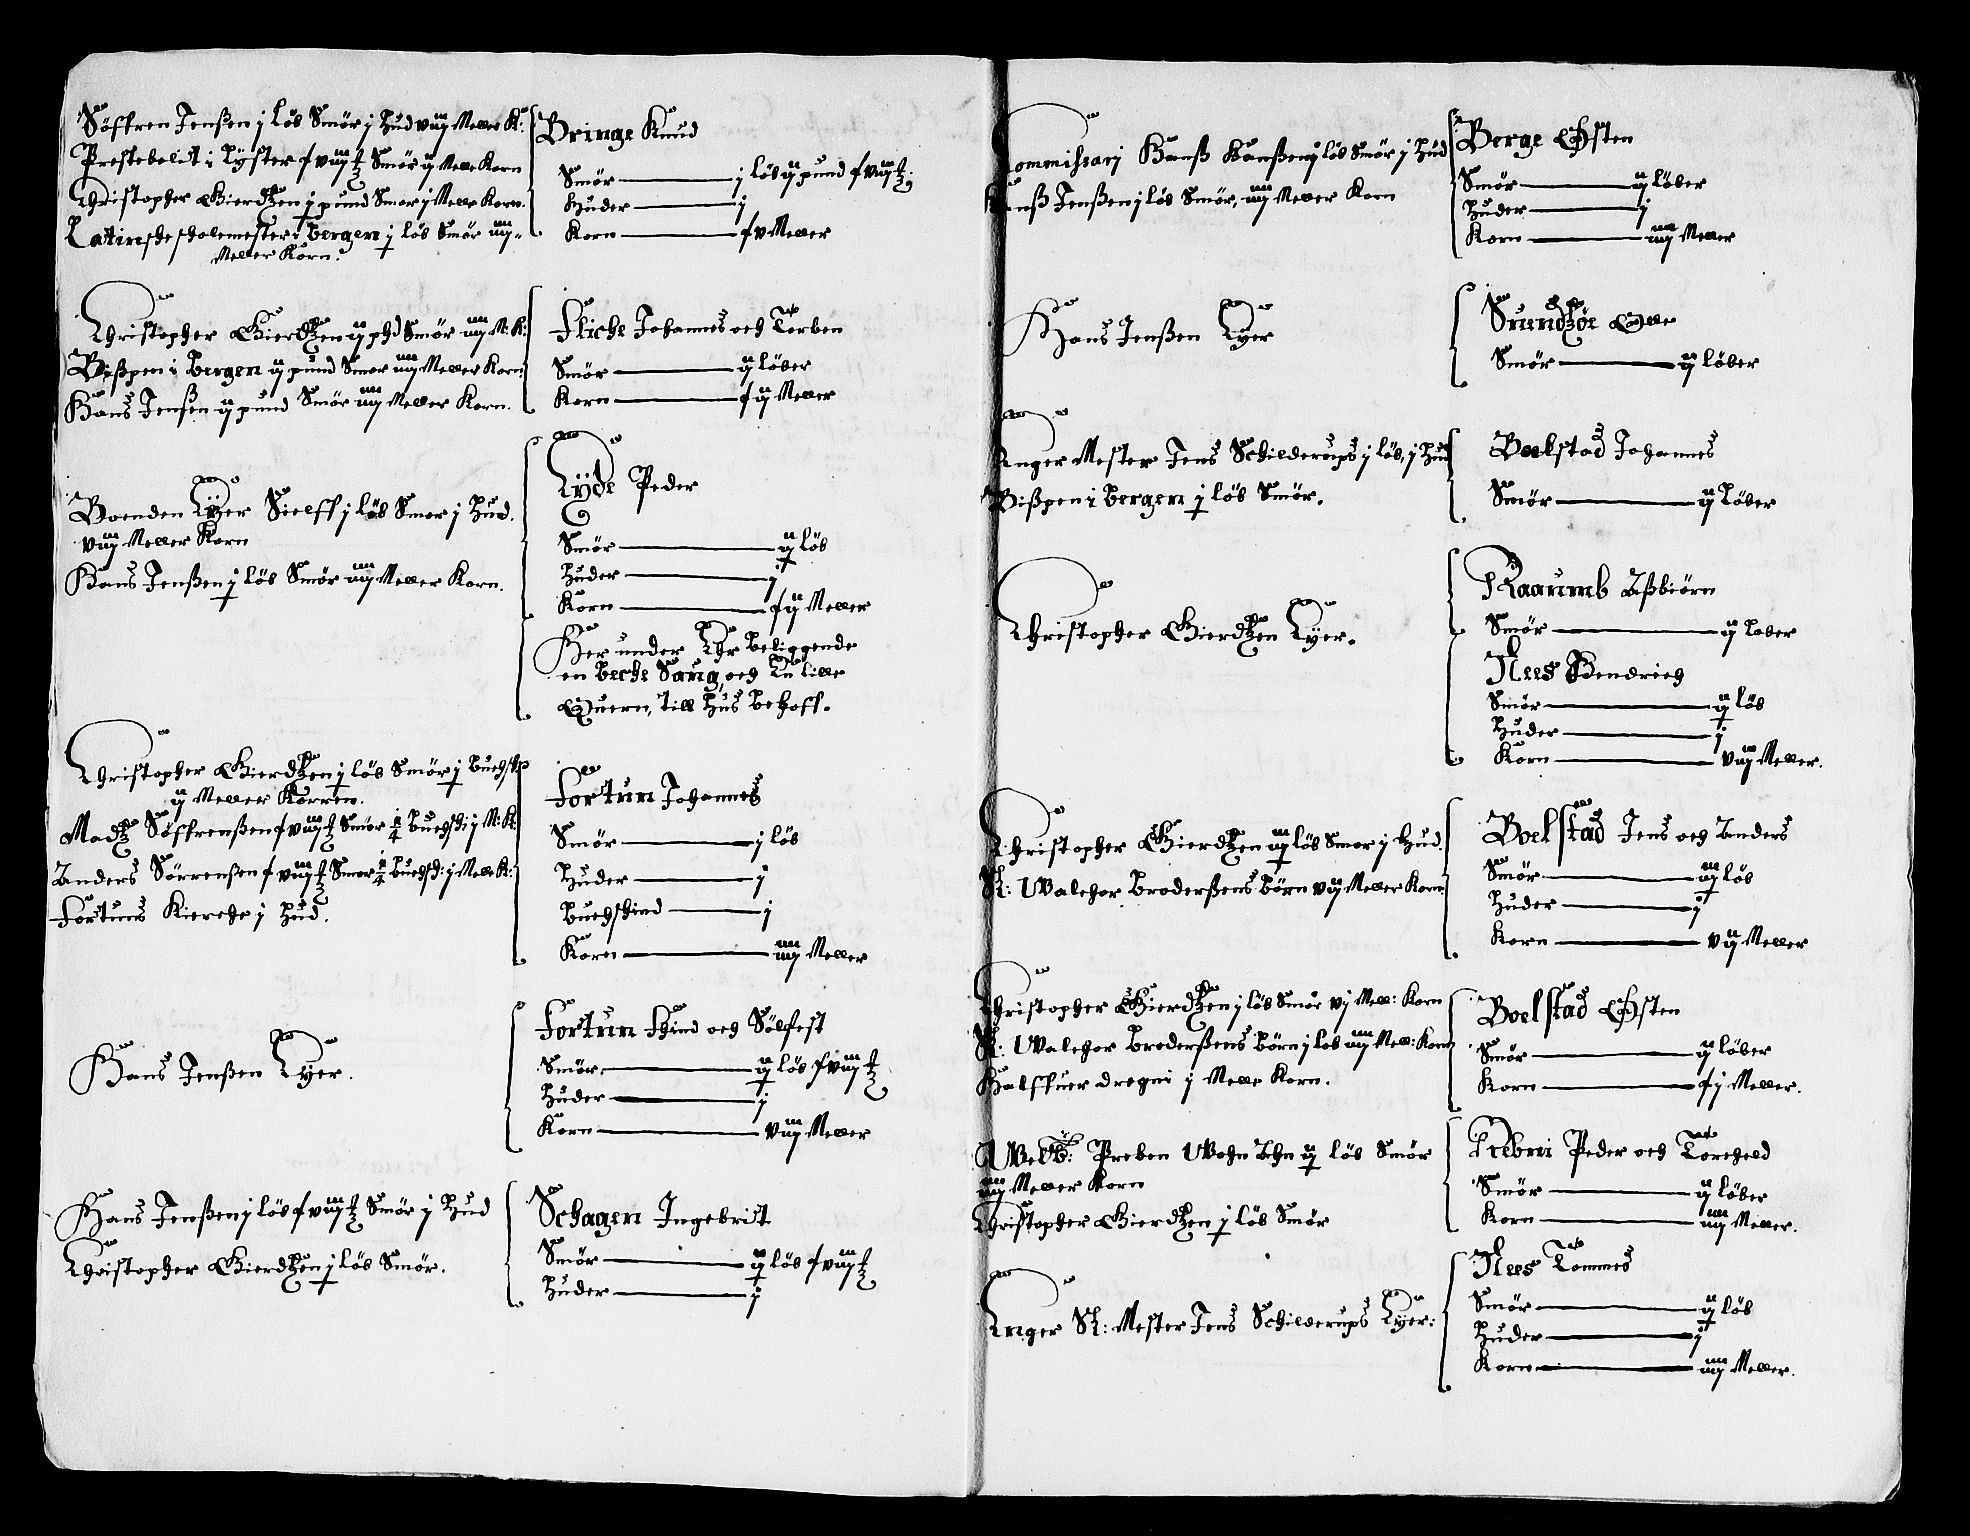 Söffren Jenßen j löb Smör j Hud viiij Meller K:
Prestebolit i Lyster f viiij Smör ij Melle Korn
Christopher Gierdtzen j pund Smør j Meller Korn.
Latinsche scholemester i bergen j löb Smör iiij
Meller Korn.
Bringe Knud
Smör j löb ij pund f viiij
Huder j
Korn f v Meller
Christopher Gierdtzen ij phd Smör iiij M: K:
Bißpen i bergen ij pund Smør iiij Meller Korn
Hans Jenßen ij pund Smör iiij Meller Korn.
Fliche Johannes och Torben
Smör ij löber
Korn f ij Meller
Boenden Eyer Sielff j löb Smør j Hud.
viiij Meller Korn
Hans Jenßen j löb Smör iiij Meller Korn.
Eyde Peder
Smör ij löb
Huder j
Korn f ij Meller
Her under Ehr beliggende
en beche Saug, och En lille
Quern, till hus behoff.
Christopher Gierdtzen j löb Smör j buchsk
ij Meller Korren.
Madtz Söffrenßen f viiij Smör 1/4 buchsk: j M: K:
Anders Sörrenßen f viiij Smør 1/4 buchsk: j Melle K:
Fortuns Kierche j Hud.
Fortun Johannes
Smör j löb
Huder j
Buchskind j
Korn iiij Meller
Hans Jenßen Eyer.
Fortun Find och Sölfest
Smör ij löb f viiij
Huder j
Korn viiij Meller
Hans Jenßen j löb f viiij Smör j Hud
Christopher Gierdtzen j löb Smör.
Schagen Ingebrit
Smör ij löb f viiij
Huder j
Commissarj Hanß Hanßen j löb Smör j Hud
Hanß Jenßen j löb Smör, iiij Meller Korn
Berge Østen
Smör ij löber
Huder j
Korn iiij Meller
Hans Jenßen Eyer
Sundzøe Olle
Smör ij löber
Enger Mester Jens Schilderups j löb, j Hud
Bißpen i bergen j löb Smör.
Bolstad Johannes
Smör ij Löber
Christopher Gierdtzen Eyer.
Raaumb Aßbiörn
Smör ij Løber
Nees Hendrich
Smör ij löb
Huder j
Korn viij Meller.
Christopher Gierdtzen iij löb Smør j Hud.
S: Valchor Broderßens Börn vij Meller Korn
Boelstad Jens och Anders
Smör iij löb
Huder j
Korn vij Meller
Christopher Gierdtzen j löb Smör vj Mell: Korn
S: Valchor Broderßens Börn j løb iiij Mell: Korn
Halffuer dregni j Melle Korn.
Boelstad Østen
Smör ij löber
Korn f j Meller.
Welb: Preben Vohn Ahn ij löb Smör
iiij Meller Korn
Christopher Gierdtzen j löb Smör
Peder och Torcheld
Smör ij löber
Korn iiij Meller.
Enger S: Mester Jens Schilderups Eyer:
Nees Tommes
Smör ij löb
Huder j
Korn iiij Meller.